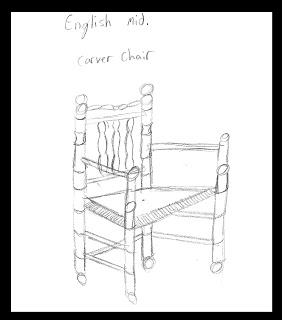 English Mid.
Carver Chair